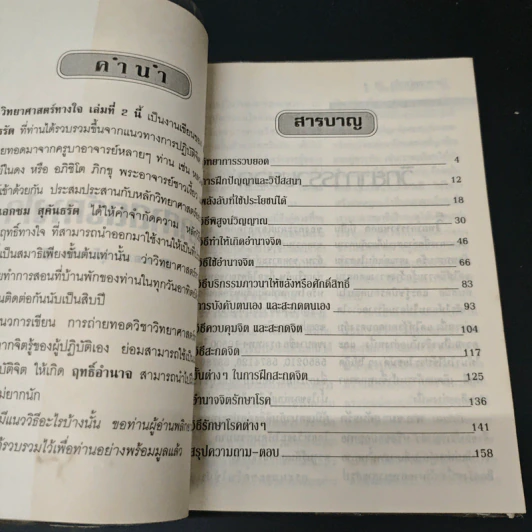 คำนำ
วิทยาศาสตร์ทางใจ เล่มที่ 2 นี้ เป็นงานเขียนของ
ที่ท่านได้รวบรวมขึ้นจากแนวทางการปฏิบัติ
ครูบาอาจารย์หลายๆ ท่าน เช่น
หรือ อภิชิโต ภิกขุ พระอาจารย์
เข้าด้วยกัน ประสมประสานกับหลักวิทยาศาสตร์
สุคันธรัต ได้ให้คำจำกัดความ
ฤทธิ์ทางใจ ที่สามารถนำออกมาใช้งานให้เป็น
เป็นสมาธิเพียงขั้นต้นเท่านั้น ว่าวิทยาศาสตร์
ทำการสอนที่บ้านพักของท่านในทุกวันอาทิตย์
ติดต่อกันนับเป็นสิบปี
แนวการเขียน การถ่ายทอดวิชาวิทยาศาสตร์
จากจิตรู้ของผู้ปฏิบัติเอง ย่อมสามารถใช้เป็น
ให้เกิด ฤทธิ์อำนาจ สามารถนำไป
ไม่ยากนัก
มีแนววิธีอะไรบ้างนั้น ขอท่านผู้อ่านพลิก
ได้รวบรวมไว้เพื่อท่านอย่างพร้อมมูลแล้ว
สารบาญ
วิทยาการรวบยอด 4
การฝึกปัญญาและวิปัสสนา 12
พลังลับที่ใช้ประโยชน์ได้ 18
วิธีพิสูจน์วิญญาณ 30
วิธีทำให้เกิดอำนาจจิต 46
วิธีใช้อำนาจจิต 66
วิธีบริกรรมภาวนาให้ขลังหรือศักดิ์สิทธิ์ 88
การบังคับตนเอง และสะกดตนเอง 93
วิธีควบคุมจิต และสะกดจิต 104
วิธีสะกดจิต 117
ขั้นต่างๆ ในการฝึกสะกดจิต 125
อำนาจจิตรักษาโรค 136
วิธีรักษาโรคต่างๆ 141
สรุปความถาม-ตอบ 158